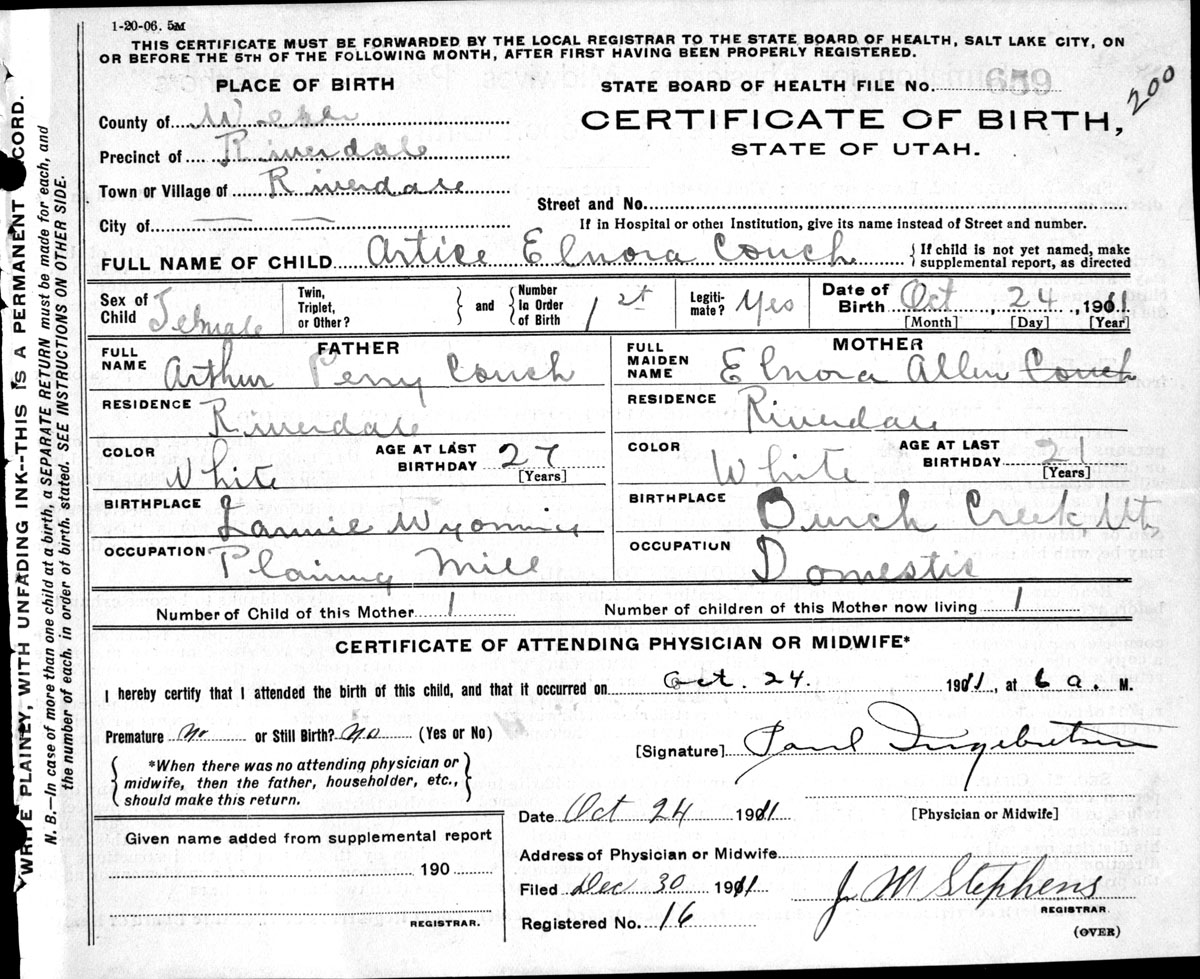 1-20-06. 5M
THIS CERTIFICATE MUST BE FORWARDED BY THE LOCAL REGISTRAR TO THE STATE BOARD OF HEALTH, SALT LAKE CITY, ON
OR BEFORE THE 5TH OF THE FOLLOWING MONTH, AFTER FIRST HAVING BEEN PROPERLY REGISTERED.
WRITE PLAINLY, WITH UNFADING INK--THIS IS A PERMANENT RECORD.
N. B.—In case of more than one child at a birth, a SEPARATE RETURN must be made for each, and
the number of each, in order of birth, stated. SEE INSTRUCTIONS ON OTHER SIDE.
PLACE OF BIRTH
County of Weber
Precinct of Riverdale
Town or Village of Riverdale
City of — —
STATE BOARD OF HEALTH FILE No. 659
200
CERTIFICATE OF BIRTH,
STATE OF UTAH.
Street and No.
If in Hospital or other Institution, give its name instead of Street and number.
FULL NAME OF CHILD Artice Elnora Couch { If child is not yet named, make
supplemental report, as directed
Sex of Child Female
Twin, Triplet, or Other? } and { Number In Order of Birth 1st
Legitimate? Yes
Date of Birth Oct, 24, 1911
[Month] [Day] [Year]
FATHER
FULL NAME Arthur Perry Couch
RESIDENCE Riverdale
COLOR White AGE AT LAST BIRTHDAY 27 [Years]
BIRTHPLACE Wyoming
OCCUPATION Planing Mill
MOTHER
FULL MAIDEN NAME Elnora Allen Couch
RESIDENCE Riverdale
COLOR White AGE AT LAST BIRTHDAY 21 [Years]
BIRTHPLACE Burch Creek Ut.
OCCUPATION Domestic
Number of Child of this Mother 1 Number of children of this Mother now living 1
CERTIFICATE OF ATTENDING PHYSICIAN OR MIDWIFE*
I hereby certify that I attended the birth of this child, and that it occurred on Oct. 24. 1911, at 6 a. M.
Premature No or Still Birth? No (Yes or No)
[Signature] Paul Ingebretsen
{ *When there was no attending physician or
midwife, then the father, householder, etc.,
should make this return. }
Date Oct 24 1911 [Physician or Midwife]
Given name added from supplemental report
190
REGISTRAR.
Address of Physician or Midwife
Filed Dec 30 1911 J M Stephens
REGISTRAR
Registered No. 16
(OVER)